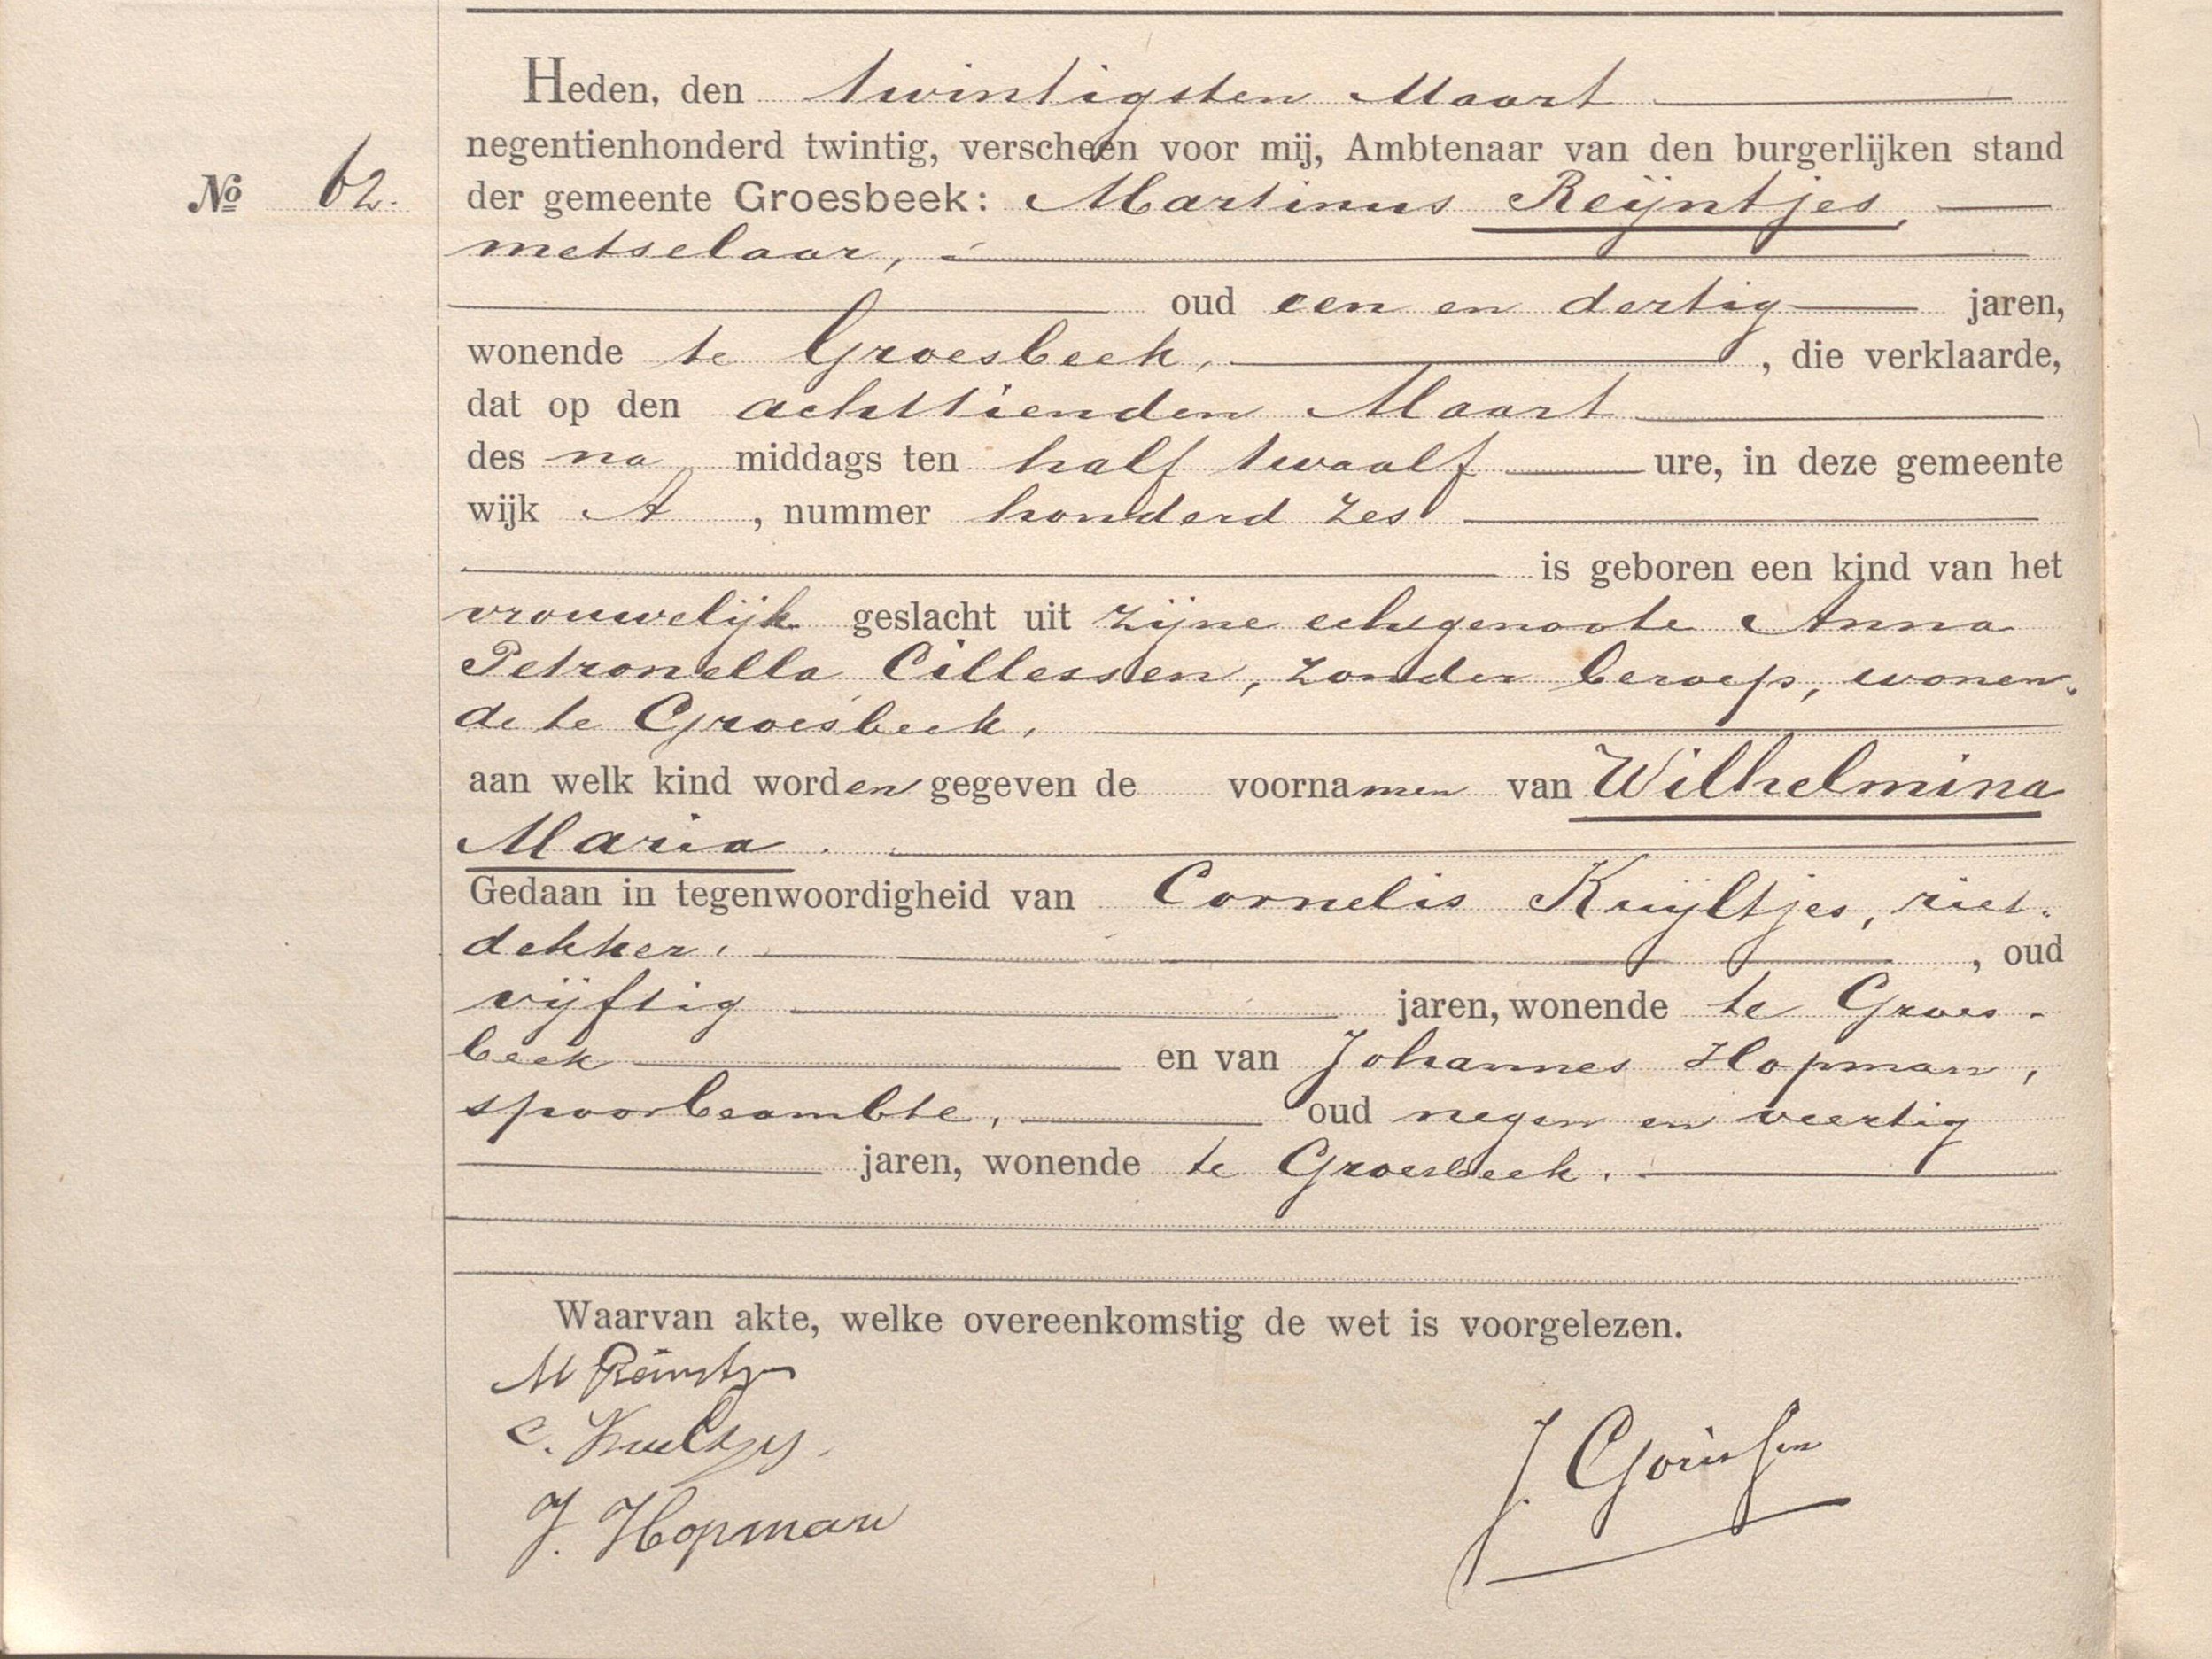 Heden, den twintigsten Maart
negentienhonderd twintig, verscheen voor mij, Ambtenaar van den burgerlijken stand
No 62.
der gemeente Groesbeek: Martinus Reijntjes,
metselaar,
oud een en dertig jaren,
wonende te Groesbeek, , die verklaarde,
dat op den achttienden Maart
des na middags ten half twaalf ure, in deze gemeente
wijk A , nummer honderd zes
is geboren een kind van het
vrouwelijk geslacht uit zijne echtgenoote Anna
Petronella Cillessen, zonder beroep, wonen-
de te Groesbeek,
aan welk kind worden gegeven de voornamen van Wilhelmina
Maria.
Gedaan in tegenwoordigheid van Cornelis Kuijltjes, riet-
dekker, , oud
vijftig jaren, wonende te Groes-
beek en van Johannes Hopman,
spoorbeambte, oud negen en veertig
jaren, wonende te Groesbeek.
Waarvan akte, welke overeenkomstig de wet is voorgelezen.
M
C.
J. Hopman
J. Gorissen